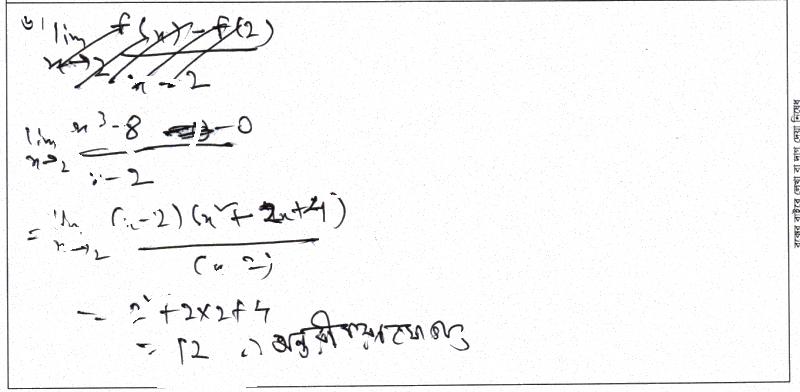 ৬। lim x→2 f(x) - f(2) / x - 2
lim x→2 x³ - 8 - 0 / x - 2
= lim x→2 (x-2)(x²+2x+4) / (x-2)
= 2² + 2×2+4
= 12 ∴
বক্সের বাইরে লেখা বা দাগ দেয়া নিষেধ